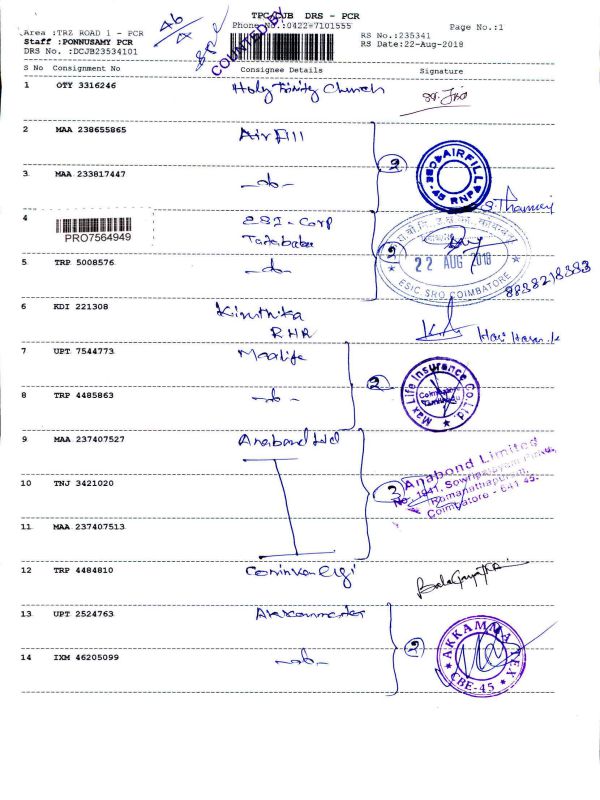 TPC CJB DRS - PCR
Area :TRZ ROAD 1 - PCR
Phone No.:0422-7101555
Page No.:1
Staff :PONNUSAMY PCR
RS No.:235341
DRS No. :DCJB23534101
RS Date:22-Aug-2018
COUNTED BY
S No Consignment No Consignee Details Signature
1 OTY 3316246 Holy Trinity Church
2 MAA 238655865 Air Fill
2
AIRFILL
CBE - 45 RNP
3 MAA 233817447 -do-
S.
4 PRO7564949 ESI - Corp
2
22 AUG 2018
ESIC SRO COIMBATORE
5 TRP 5008576 -do-
8838218383
6 KDI 221308
RHR
Hari Haran.k
7 UPT 7544773 Maxlife
2
Max Life Insurance Co.Ltd
8 TRP 4485863 -do-
9 MAA 237407527 Anabond Ltd
3
Anabond Limited
No. 1941, Sowripalayam Pirivu,
Ramanathapuram,
Coimbatore - 641 45.
10 TNJ 3421020
11 MAA 237407513
12 TRP 4484810
13 UPT 2524763
2
AKKAMMA TEX
CBE-45
14 IXM 46205099 -do-